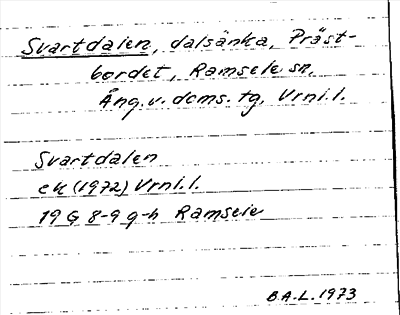 Svartdalen, dalsänka, Präst-
bordet, Ramsele sn,
Ång.v. doms. tg, Vrni.l.
Svartdalen
ek (1972) Vrni.l.
19 G 8-9 g-h Ramsele
B.A.L. 1973